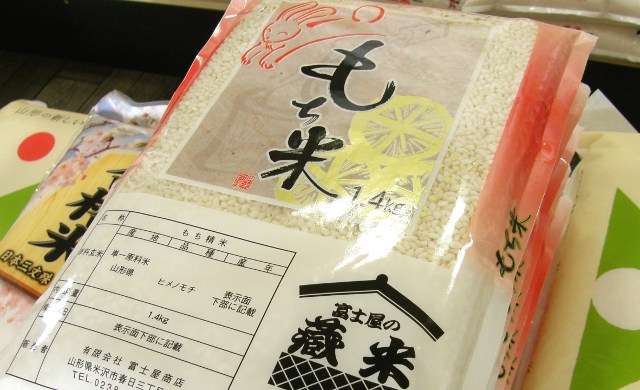 もち米
1.4kg
名称
もち精米
産地
品種
産年
原料玄米
単一原料米
山形県
ヒメノモチ
表示面
下部に記載
1.4kg
表示面下部に記載
有限会社 富士屋商店
山形県米沢市春日三丁
TEL.0238
富士屋の
蔵米
もち米
山形の新しい